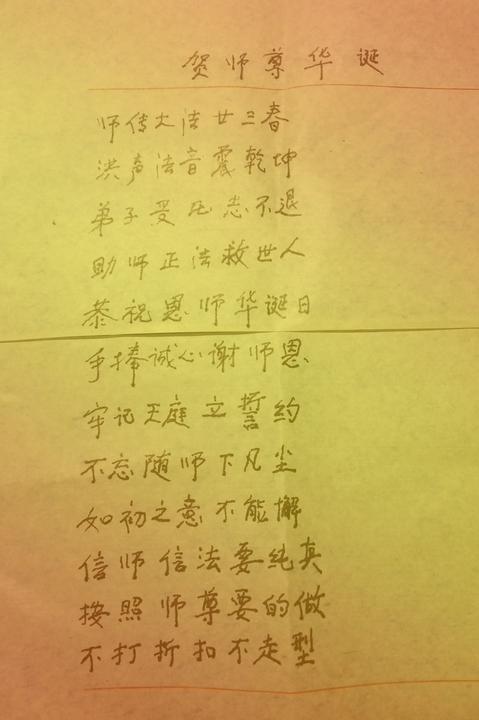 贺师尊华诞
师传大法廿三春
洪声法音震乾坤
弟子受 志不退
助师正法救世人
恭祝恩师华诞日
手捧诚心谢师恩
牢记天庭立誓约
不忘随师下凡尘
如初之意不能懈
信师信法要纯真
按照师尊要的做
不打折扣不走型